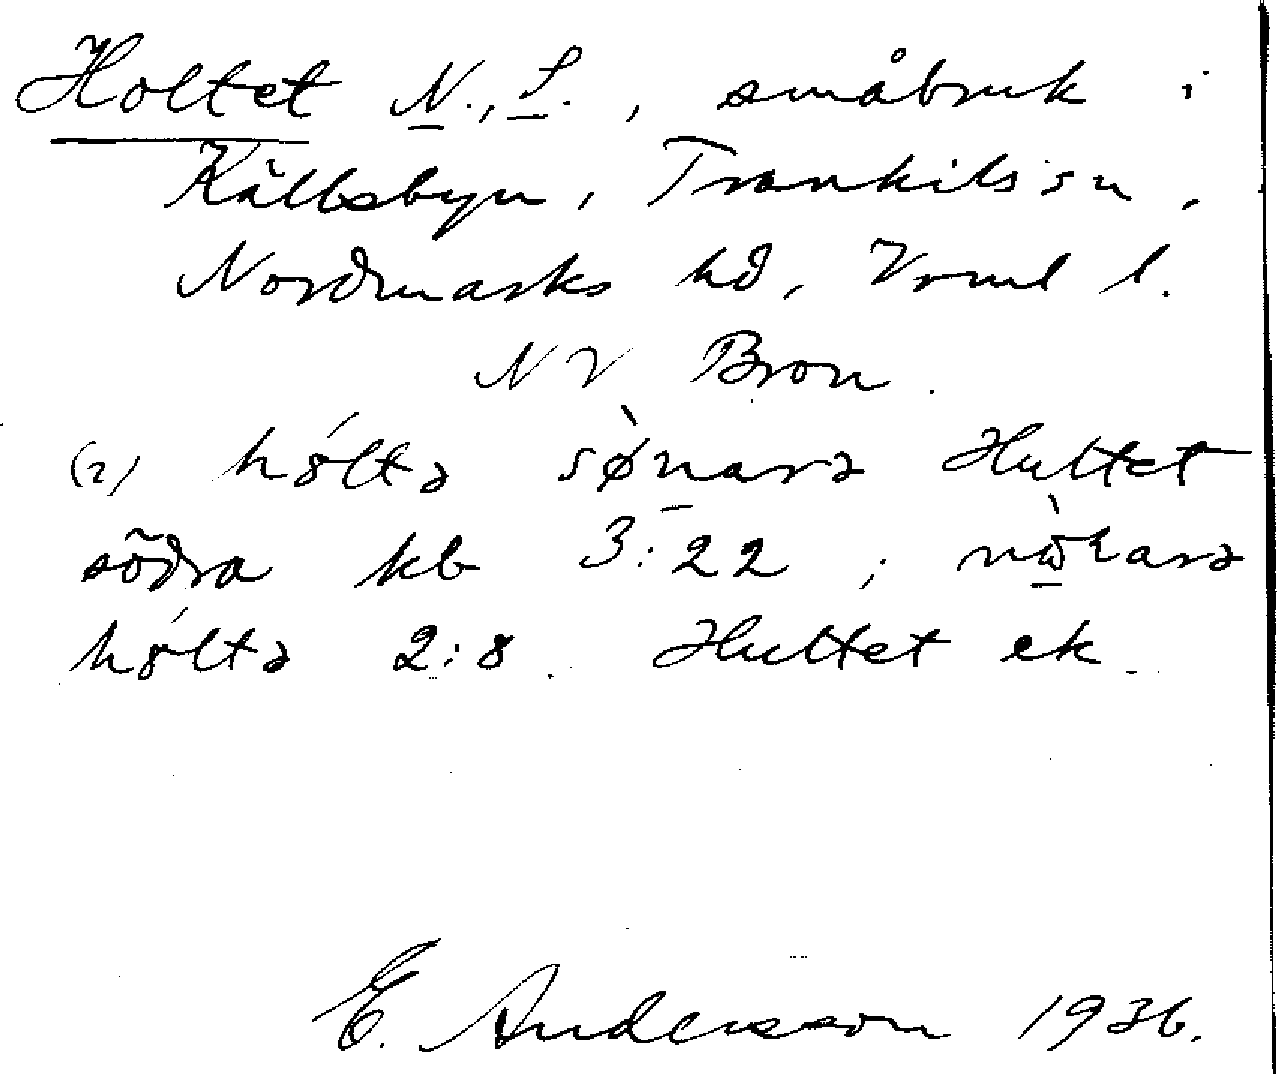 Holtet N., S., småbruk i
Källsbyn, Trankils sn,
Nordmarks hd, Vrml l.
NV Bron.
(2) hó̤ltə sø̀narə Hultet
södra kb 3:22; nò̤ɽarə
hó̤ltə 2:8. Hultet ek.
E. Andersson 1936.